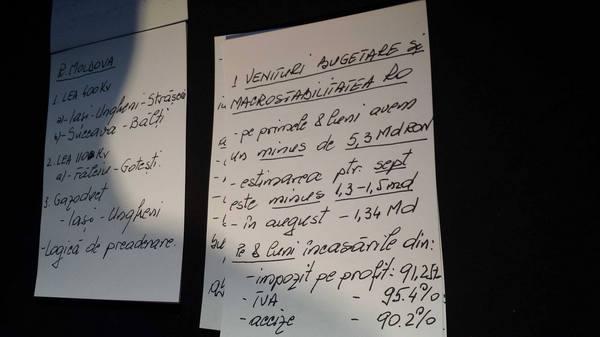 R. MOLDOVA
1. LEA 400 KV
a) - Iași - Ungheni - Strășeni
b) - Suceava - Bălți
2. LEA 110 KV
a) - Fălciu - Gotești.
3. Gazoduct
- Iași - Ungheni
- Logică de preaderare.
1 VENITURI BUGETARE și
în MACROSTABILITATEA RO
- pe primele 8 luni avem
un minus de 5,3 Md RON
- estimarea ptr. sept
este minus 1,3 - 1,5 md
- în august - 1,34 Md
Pe 8 luni încasările din:
- impozit pe profit: 91,2%
- TVA - 95.4%
- accize - 90.2%